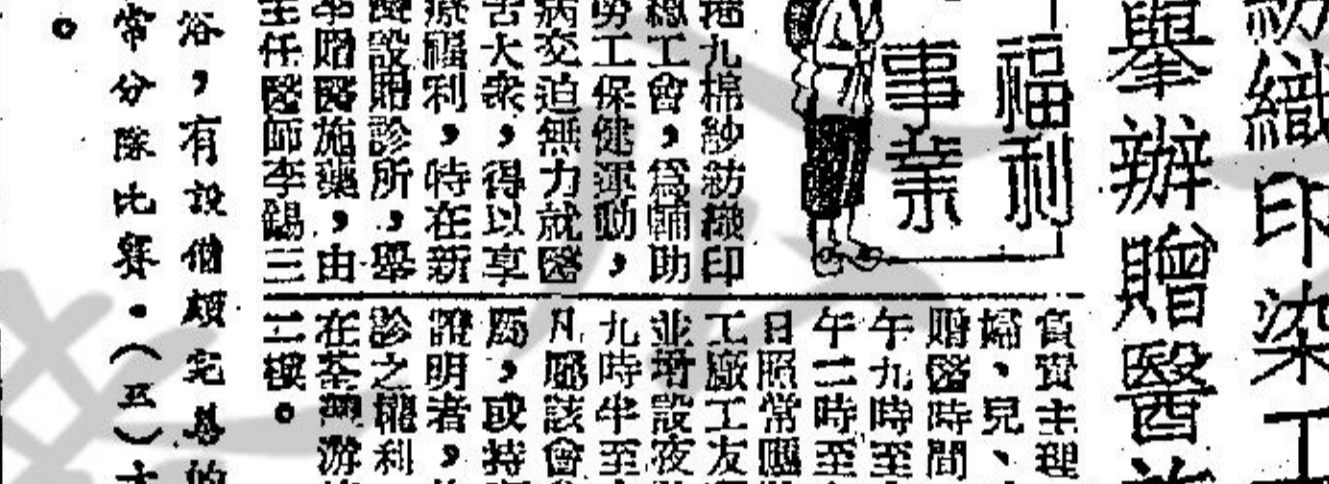 紡織印染工
舉辦贈醫施
福利
事業
港九棉紗紡織印
總工會，爲輔助
勞工保健運動，
病交迫無力就醫
苦大衆，得以享
療福利，特在新
設贈診所，舉
贈醫施藥，由
主任醫師李錫三
負責主理
婦、兒、
贈醫時間
午九時至
午二時至
日照常
工廠工友
並增設夜
九時半至
凡屬該會
屬，或持
證明者，
診之權利
在荃灣
二樓。
俗，有設備頗完善的
常分隊比賽．（五）
。